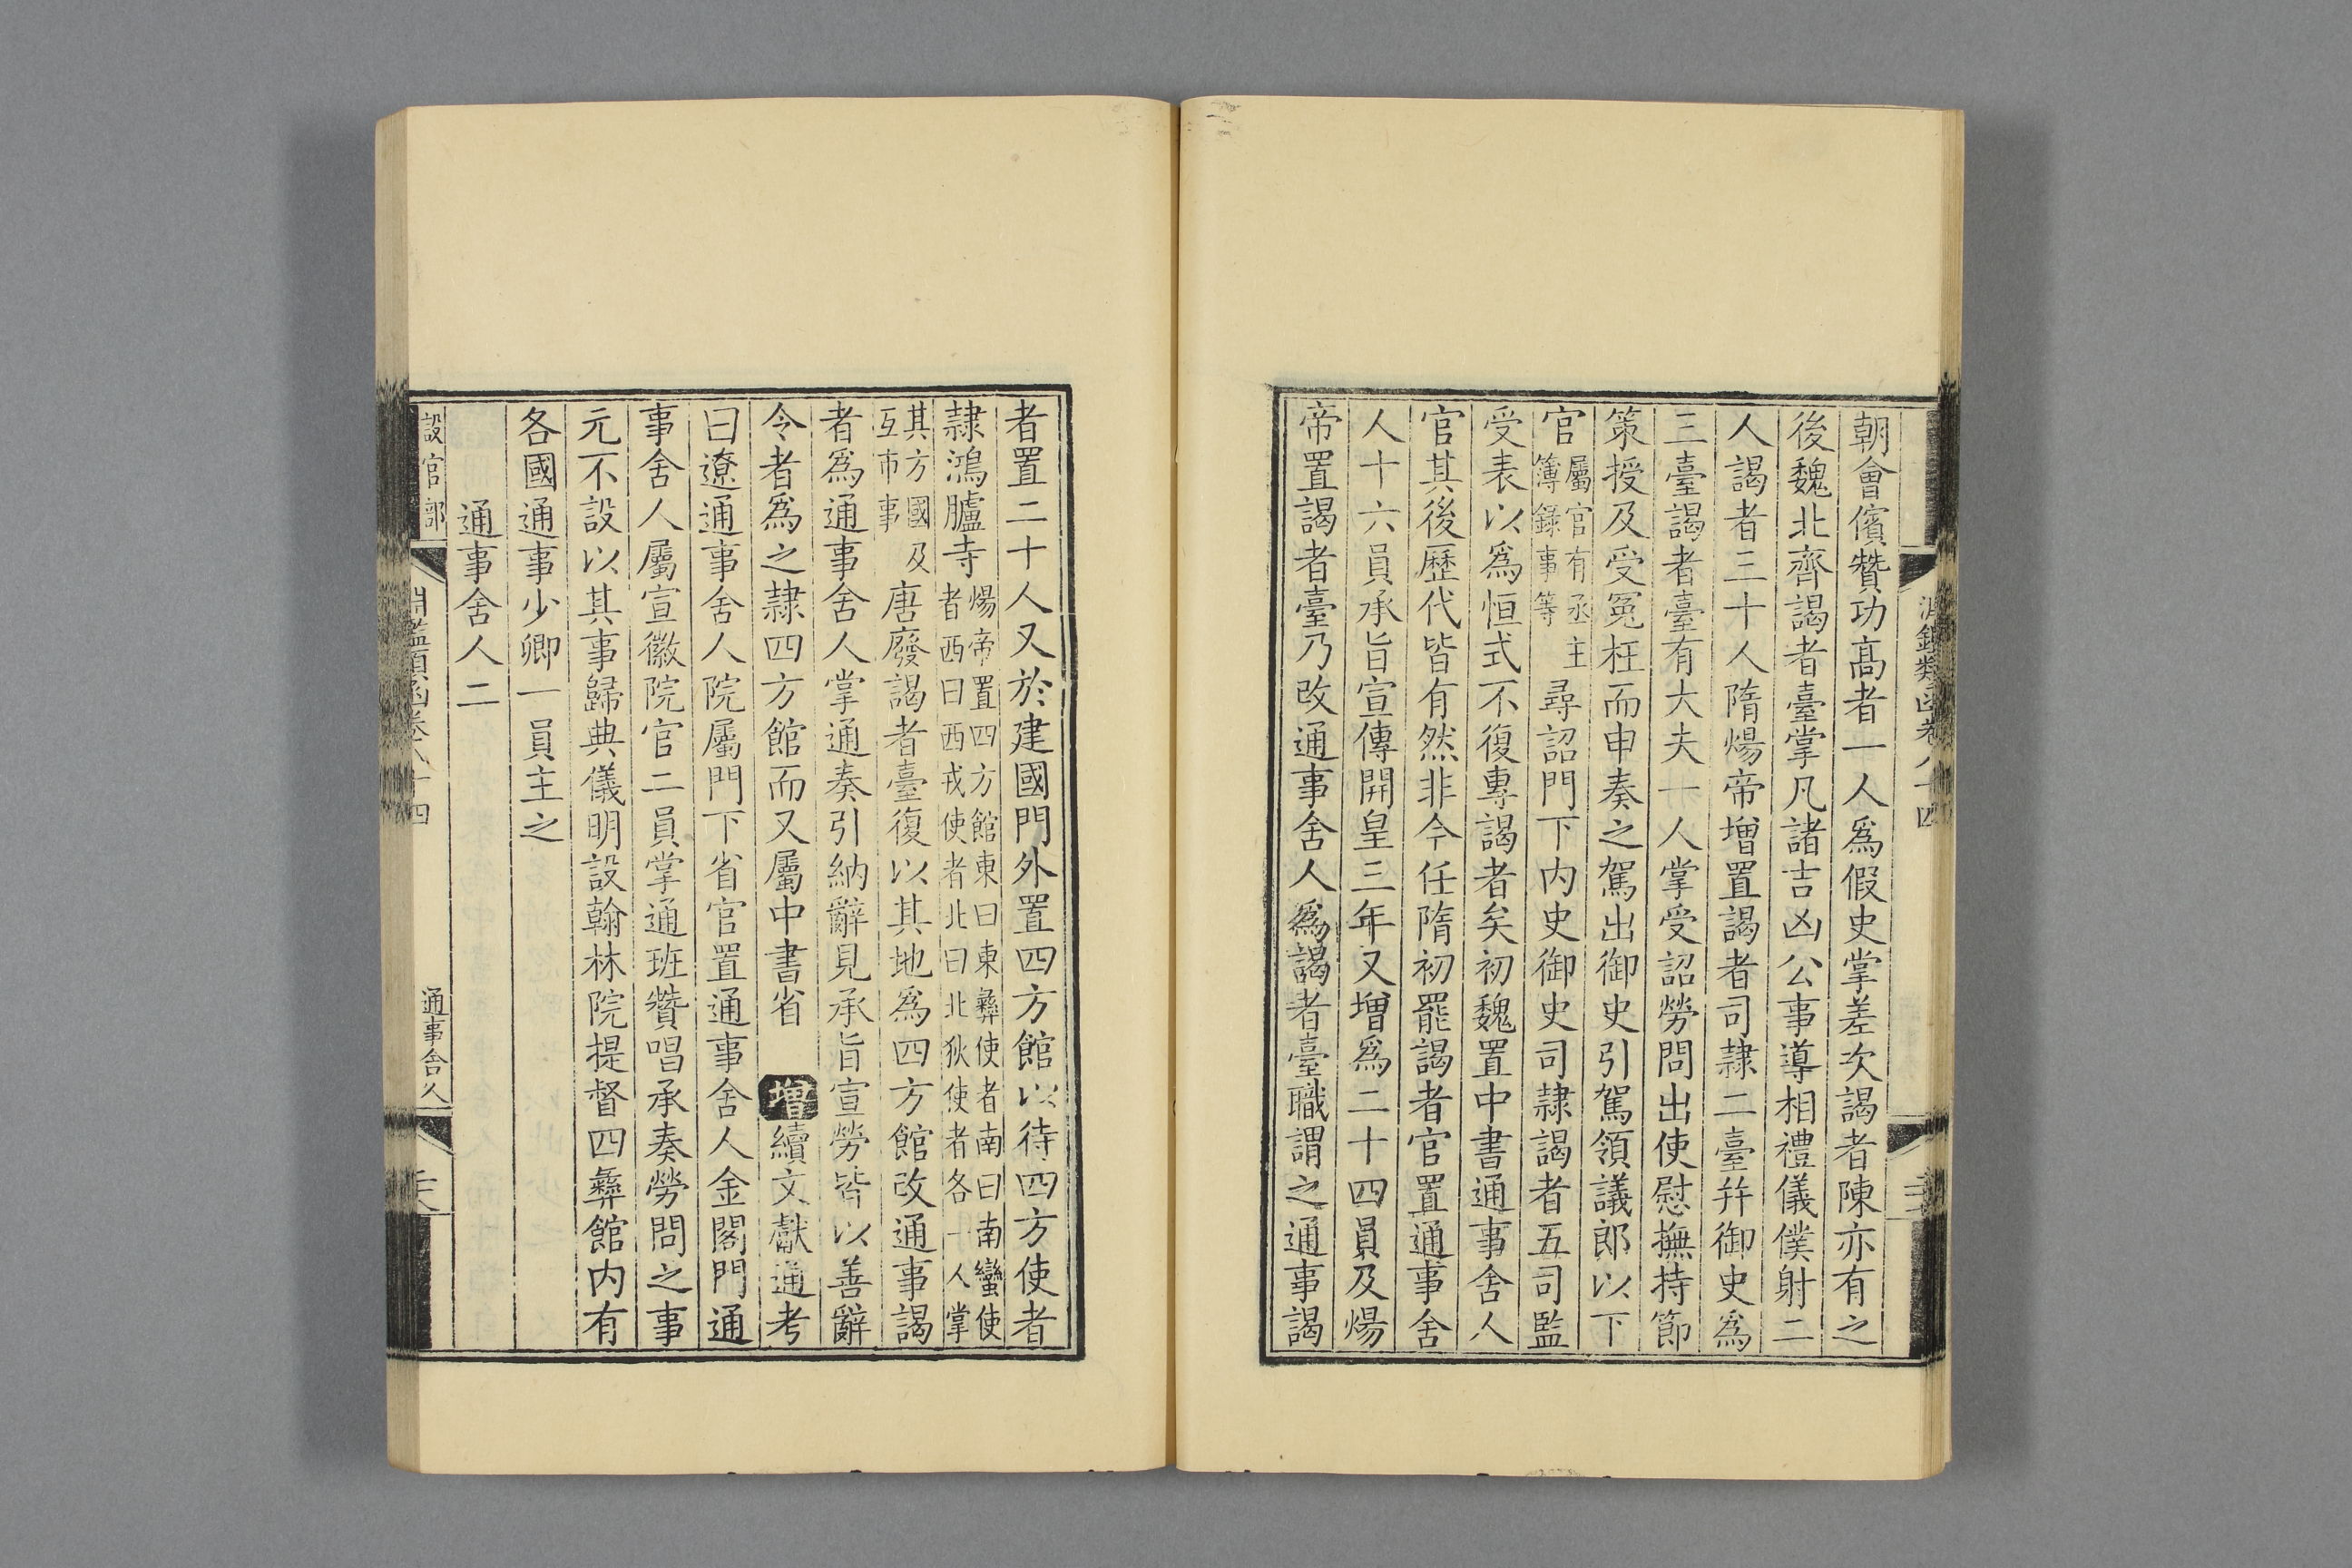 朝會儐贊功高者一人爲假史掌差次謁者陳亦有之
後魏北齊謁者臺掌凡諸吉凶公事導相禮儀僕射二
人謁者三十人隋煬帝增置謁者司隸二臺幷御史爲
三臺謁者臺有大夫一人掌受詔勞問出使慰撫持節
策授及受冤枉而申奏之駕出御史引駕領議郎以下
官屬官有丞主簿錄事等尋詔門下内史御史司隸謁者五司監
受表以爲恒式不復專謁者矣初魏置中書通事舍人
官其後歷代皆有然非今任隋初罷謁者官置通事舍
人十六員承旨宣傳開皇三年又增爲二十四員及煬
帝置謁者臺乃改通事舍人爲謁者臺職謂之通事謁
者置二十人又於建國門外置四方館以待四方使者
隸鴻臚寺煬帝置四方館東曰東彝使者南曰南蠻使者西曰西戎使者北曰北狄使者各一人掌
其方國及互市事唐廢謁者臺復以其地爲四方館改通事謁
者爲通事舍人掌通奏引納辭見承旨宣勞皆以善辭
令者爲之隸四方館而又屬中書省 增續文獻通考
曰遼通事舍人院屬門下省官置通事舍人金閣門通
事舍人屬宣徽院官二員掌通班贊唱承奏勞問之事
元不設以其事歸典儀明設翰林院提督四彝館内有
各國通事少卿一員主之
通事舍人二
設官部
淵鑑類函卷八十四
通事舍人